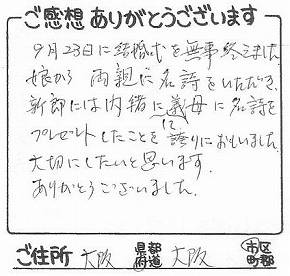 ご感想ありがとうございます
9月23日に結婚式を無事終えました
娘から両親に名詩をいただき
新郎には内緒に義母に名詩を
プレゼントしたことを誇りにおもいました
大切にしたいと思います.
ありがとうございました.
ご住所 大阪 都道府県 大阪 市区町郡